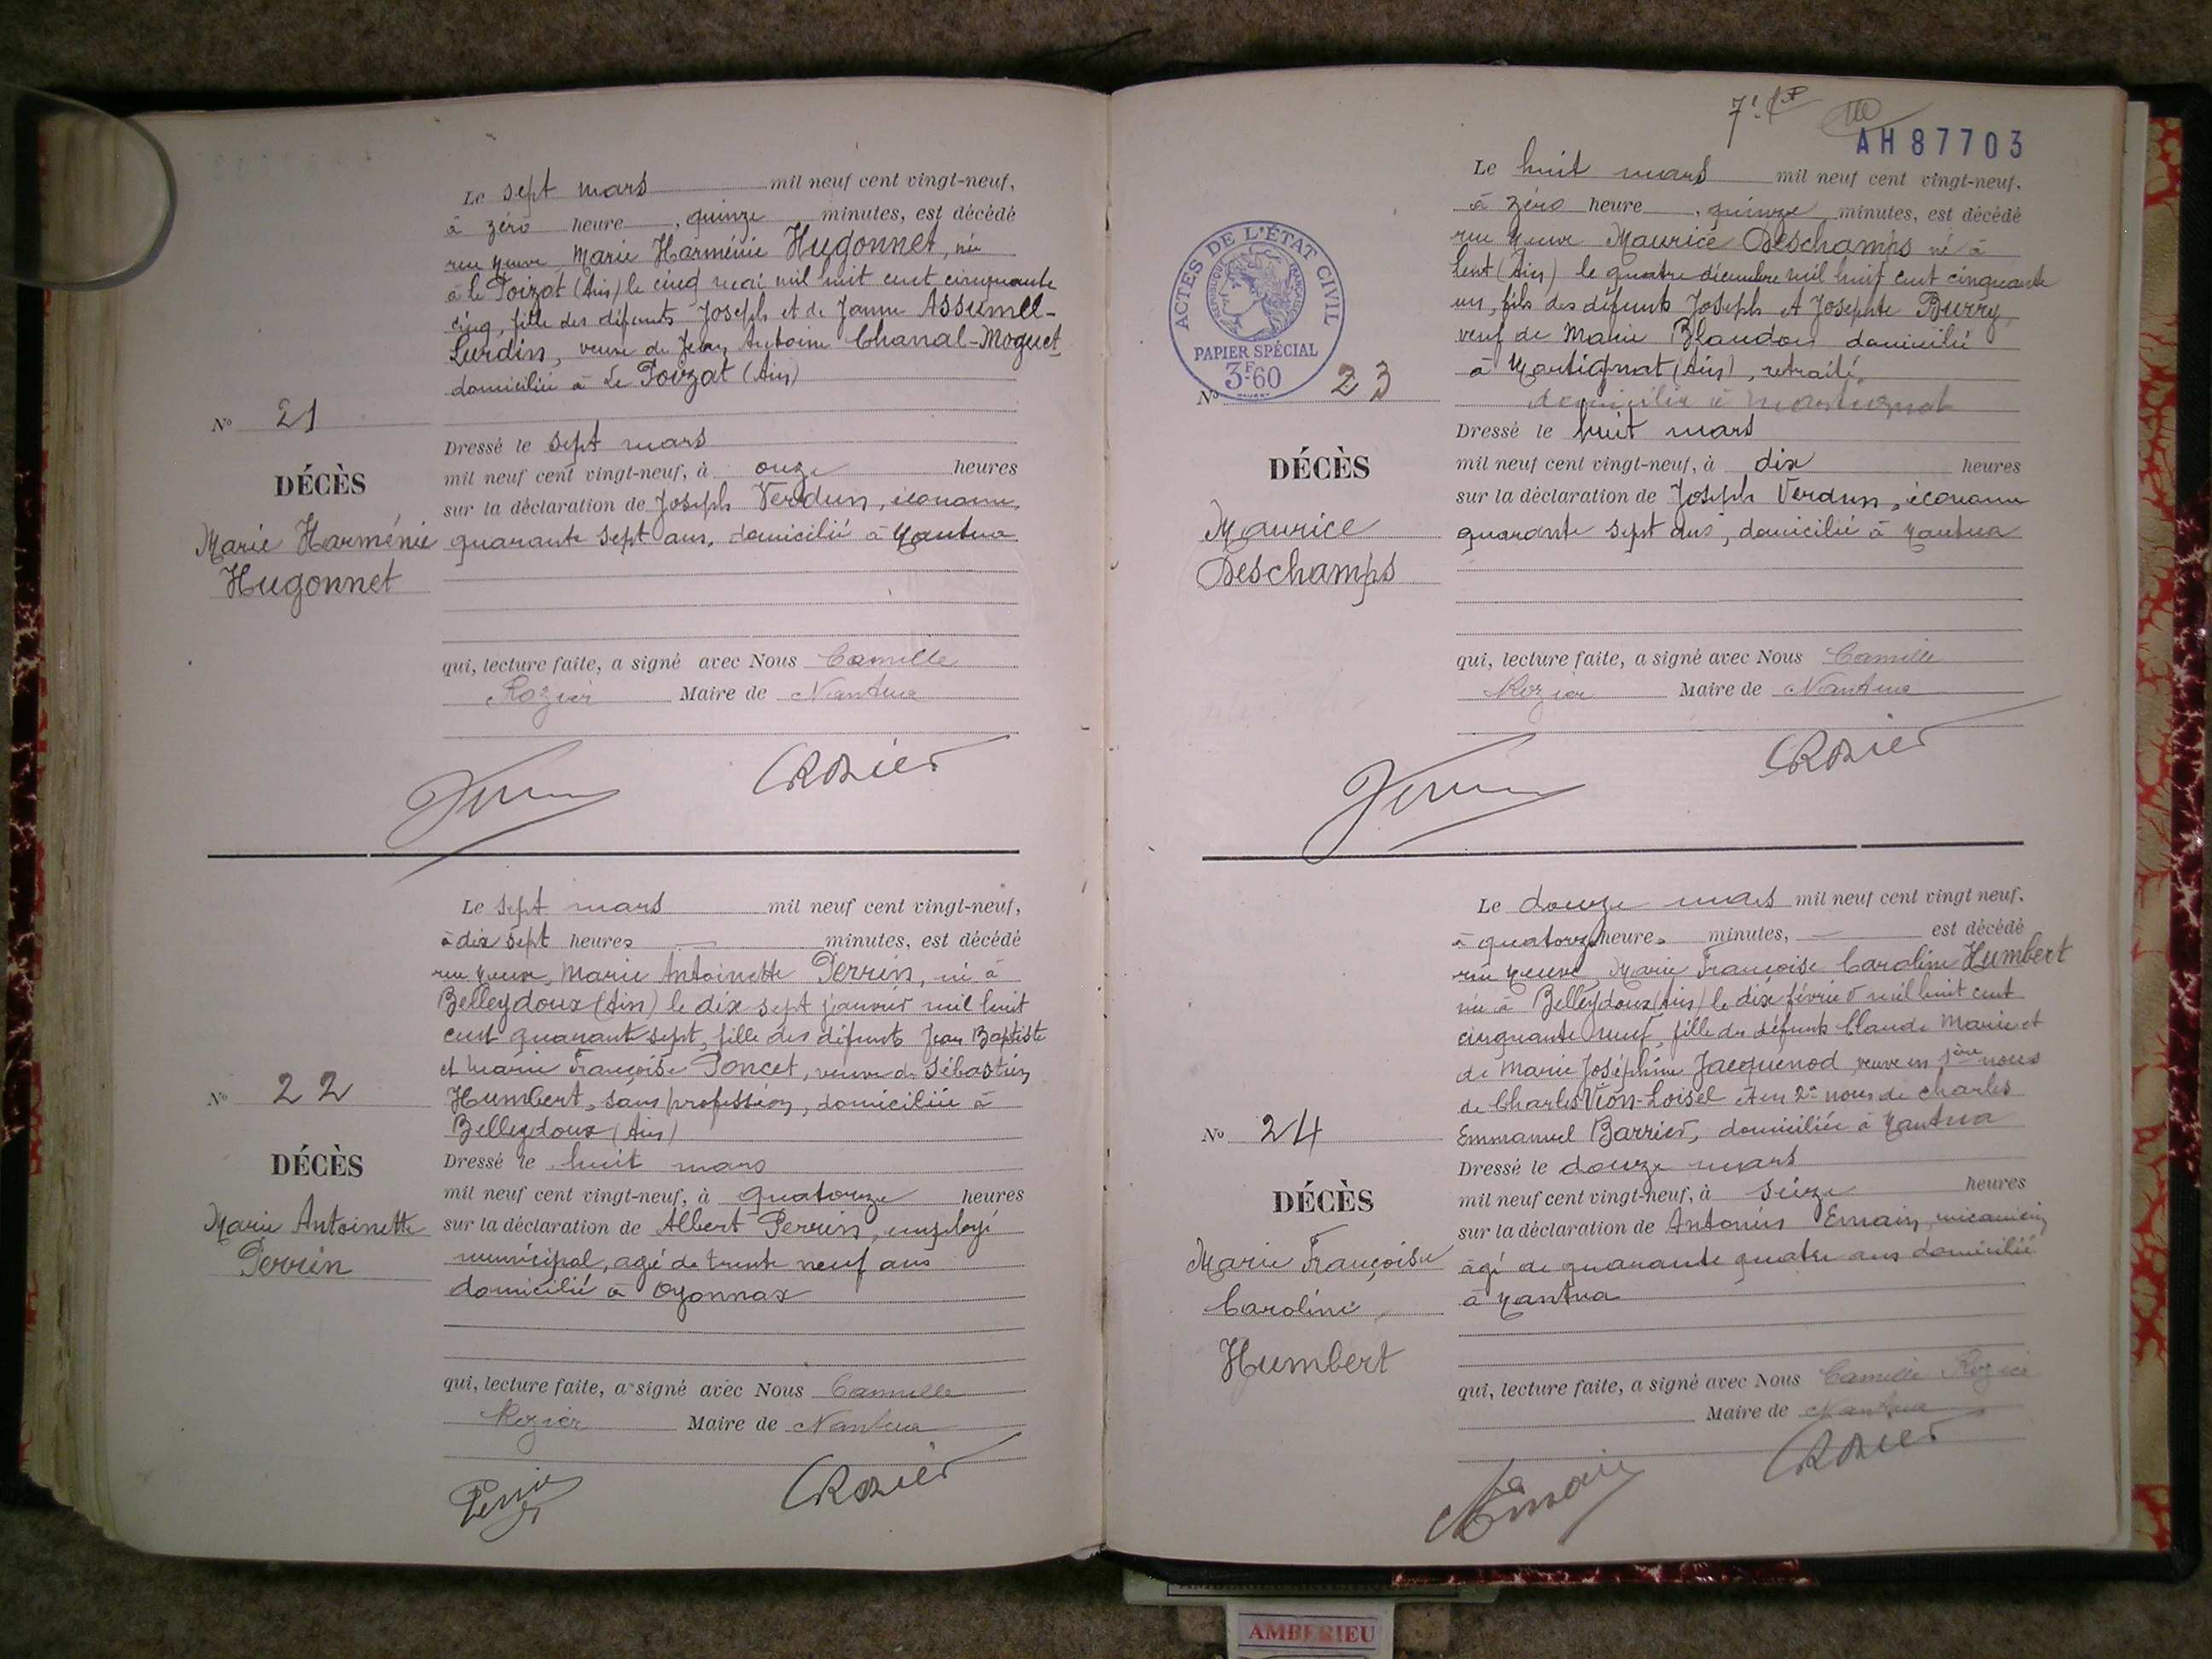 Le sept mars mil neuf cent vingt-neuf,
à zéro heure, quinze minutes, est décédé
rue Neuve, Marie Harménie Hugonnet, née
à le Poizat (Ain) le cinq mai mil huit cent cinquante
cinq, fille des défunts Joseph et de Jeanne Assumel-
Lurdin, veuve de Jean Antoine Chanal-Moguet
domiciliée à Le Poizat (Ain)
No 21
DÉCÈS
Marie Harménie
Hugonnet
Dressé le sept mars
mil neuf cent vingt-neuf, à onze heures
sur la déclaration de Joseph Verdun, économe,
quarante sept ans, domicilié à Nantua
qui, lecture faite, a signé avec Nous Camille
Rozier Maire de Nantua
CRozier
Le sept mars mil neuf cent vingt-neuf,
à dix sept heures — minutes, est décédé
rue Neuve, Marie Antoinette Perrin, née à
Belleydoux (Ain) le dix sept janvier mil huit
cent quarante sept, fille des défunts Jean Baptiste
et Marie Françoise Poncet, veuve de Sébastien
Humbert, sans profession, domiciliée à
Belleydoux (Ain)
No 22
DÉCÈS
Marie Antoinette
Perrin
Dressé le huit mars
mil neuf cent vingt-neuf, à quatorze heures
sur la déclaration de Albert Perrin, employé
municipal, agé de trente neuf ans
domicilié à Oyonnax
qui, lecture faite, a signé avec Nous Camille
Rozier Maire de Nantua
Perrin CRozier
AH87703
ACTES DE L'ÉTAT CIVIL
RÉPUBLIQUE FRANÇAISE
PAPIER SPÉCIAL
3F60
Le huit mars mil neuf cent vingt-neuf.
à zéro heure, quinze minutes, est décédé
rue Neuve Maurice Deschamps né à
Lent (Ain) le quatre décembre mil huit cent cinquante
un, fils des défunts Joseph et Josephte Burry,
veuf de Marie Blandon domicilié
à Martignat (Ain), retraité.
domicilié à Martignat
No 23
DÉCÈS
Maurice
Deschamps
Dressé le huit mars
mil neuf cent vingt-neuf, à dix heures
sur la déclaration de Joseph Verdun, économe
quarante sept ans, domicilié à Nantua
qui, lecture faite, a signé avec Nous Camille
Rozier Maire de Nantua
CRozier
Le douze mars mil neuf cent vingt neuf.
à quatorze heures minutes, — est décédé
rue Neuve, Marie Françoise Caroline Humbert
née à Belleydoux (Ain) le dix février mil huit cent
cinquante neuf, fille des défunts Claude Marie et
de Marie Joséphine Jacquenod veuve en 1ère noces
de Charles Vion-Loisel et en 2e noces de Charles
Emmanuel Barrier, domiciliée à Nantua
No 24
DÉCÈS
Marie Françoise
Caroline
Humbert
Dressé le douze mars
mil neuf cent vingt-neuf, à seize heures
sur la déclaration de Antonin Emain, mécanicien
âgé de quarante quatre ans domicilié
à Nantua
qui, lecture faite, a signé avec Nous Camille Rozier
Maire de Nantua
CRozier
AMBERIEU